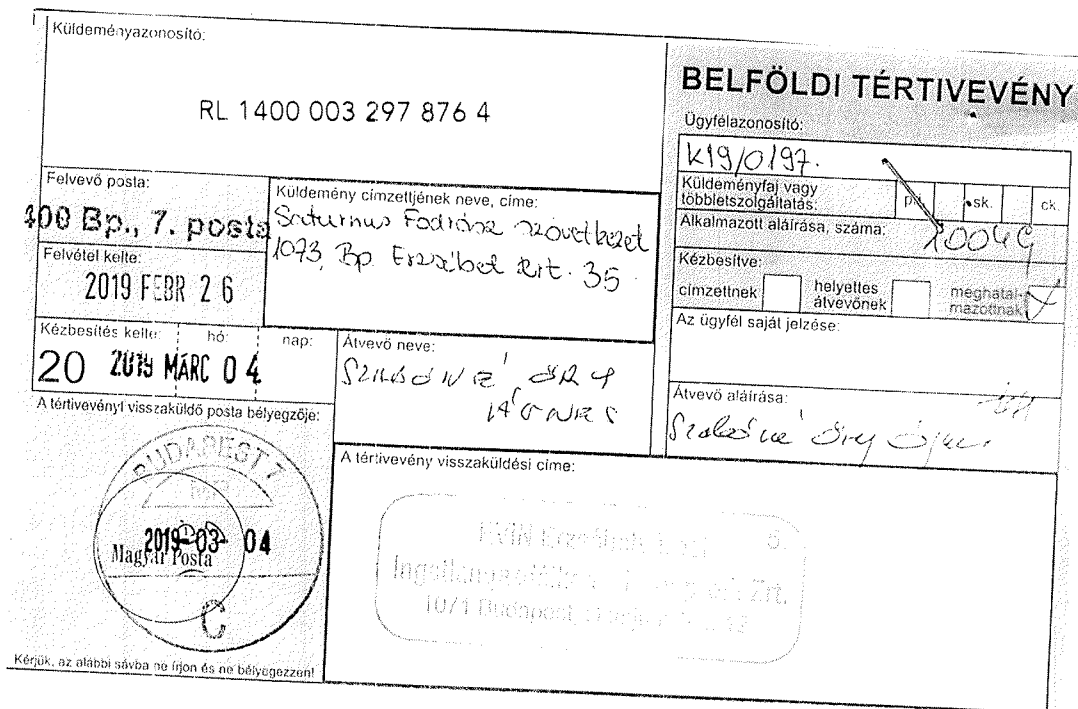 Küldeményazonosító:
RL 1400 003 297 876 4
BELFÖLDI TÉRTIVEVÉNY
Ügyfélazonosító:
K19/0197.
Küldeményfaj vagy
többletszolgáltatás:
sk.
ck.
Alkalmazott aláírása, száma:
Kézbesítve:
címzettnek
helyettes
átvevőnek
meghatal-
mazottnak
Az ügyfél saját jelzése:
Átvevő aláírása:
Felvevő posta:
400 Bp., 7. posta
Felvétel kelte:
2019 FEBR 26
Küldemény címzettjének neve, címe:
Saturnus Fodrász szövetkezet
1073, Bp. Erzsébet krt. 35.
Kézbesítés kelte:
hó:
nap:
20
2019 MÁRC 04
Átvevő neve:
A tértivevényt visszaküldő posta bélyegzője:
BUDAPEST 7
2019-03-04
Magyar Posta
C
A tértivevény visszaküldési címe:
1071 Budapest
Kérjük, az alábbi sávba ne írjon és ne bélyegezzen!